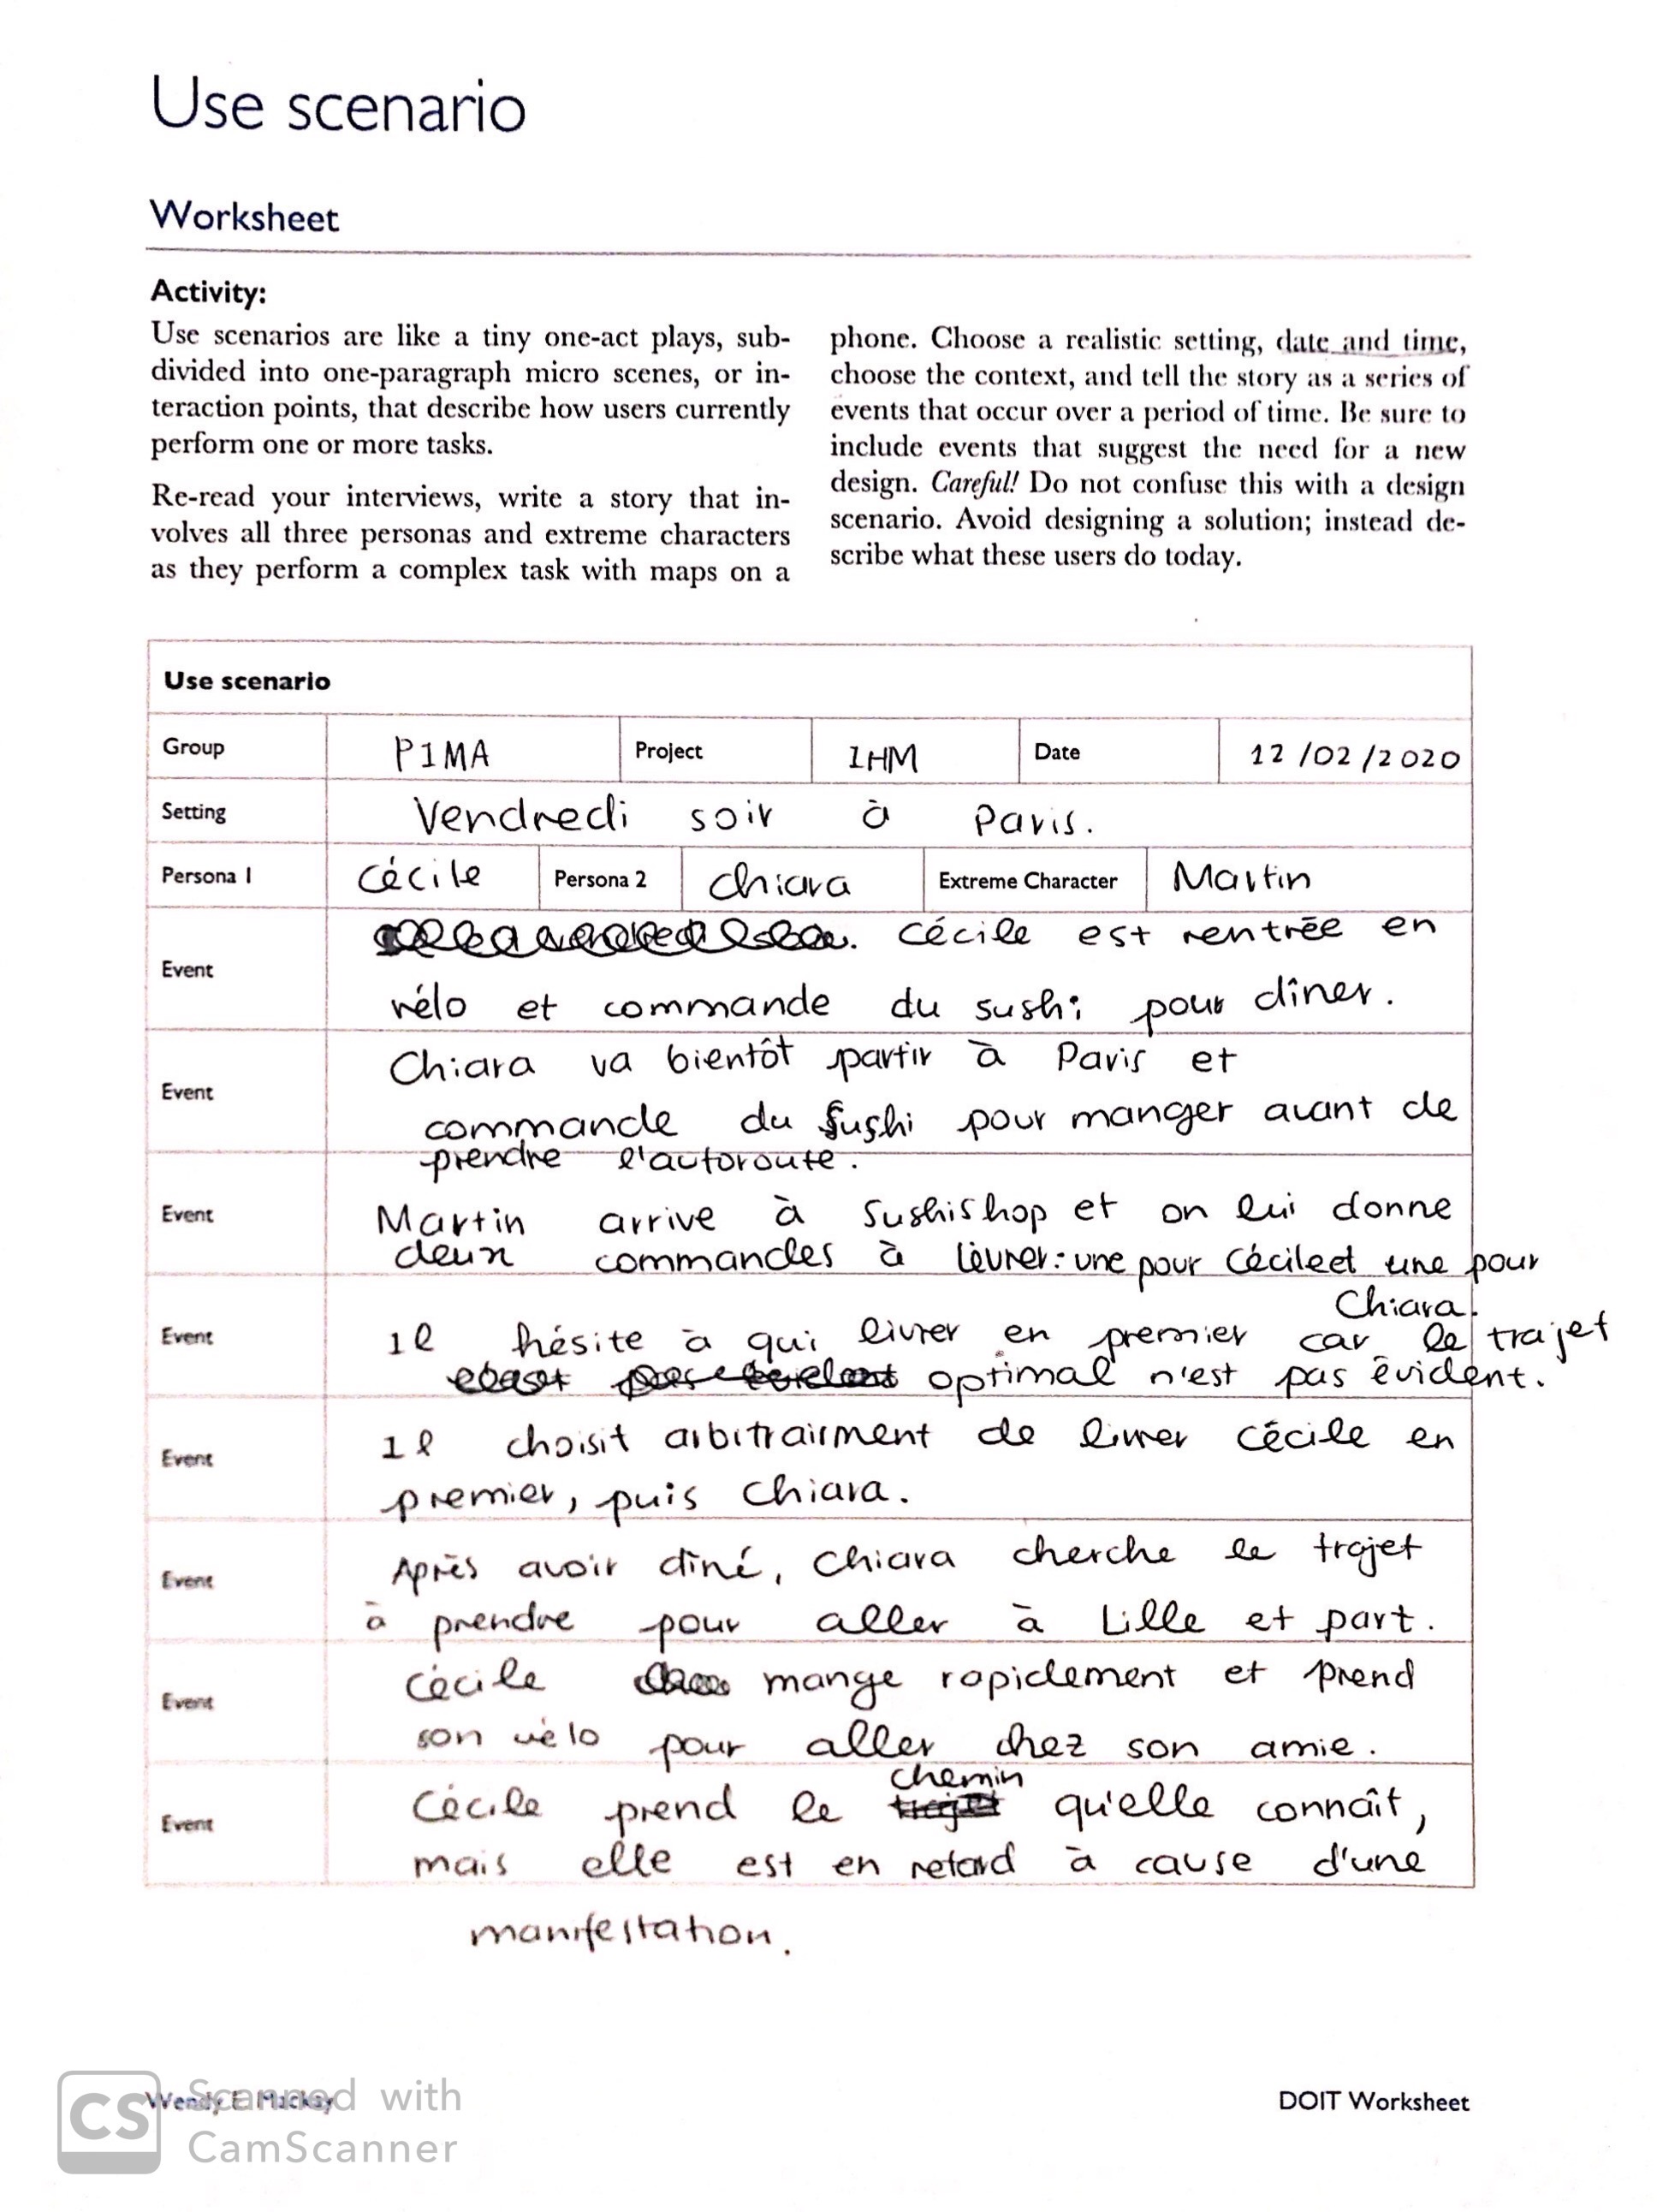 Use scenario
Worksheet
Activity:
Use scenarios are like a tiny one-act plays, sub-
divided into one-paragraph micro scenes, or in-
teraction points, that describe how users currently
perform one or more tasks.
Re-read your interviews, write a story that in-
volves all three personas and extreme characters
as they perform a complex task with maps on a
phone. Choose a realistic setting, date and time,
choose the context, and tell the story as a series of
events that occur over a period of time. Be sure to
include events that suggest the need for a new
design. Careful! Do not confuse this with a design
scenario. Avoid designing a solution; instead de-
scribe what these users do today.
Use scenario
Group P1MA Project IHM Date 12/02/2020
Setting Vendredi soir à Paris.
Persona 1 Cécile Persona 2 Chiara Extreme Character Martin
Event
Cécile est rentrée en
vélo et commande du sushi pour dîner.
Event
Chiara va bientôt partir à Paris et
commande du sushi pour manger avant de
prendre l'autoroute.
Event
Martin arrive à Sushishop et on lui donne
deux commandes à livrer: une pour Cécile et une pour
Chiara.
Event
Il hésite à qui livrer en premier car le trajet
optimal n'est pas évident.
Event
Il choisit arbitrairment de livrer Cécile en
premier, puis Chiara.
Event
Après avoir dîné, Chiara cherche le trajet
à prendre pour aller à Lille et part.
Event
Cécile mange rapidement et prend
son vélo pour aller chez son amie.
Event
Cécile prend le chemin qu'elle connaît,
mais elle est en retard à cause d'une
manifestation.
Wendy E Mackay
DOIT Worksheet
CS
Scanned with
CamScanner